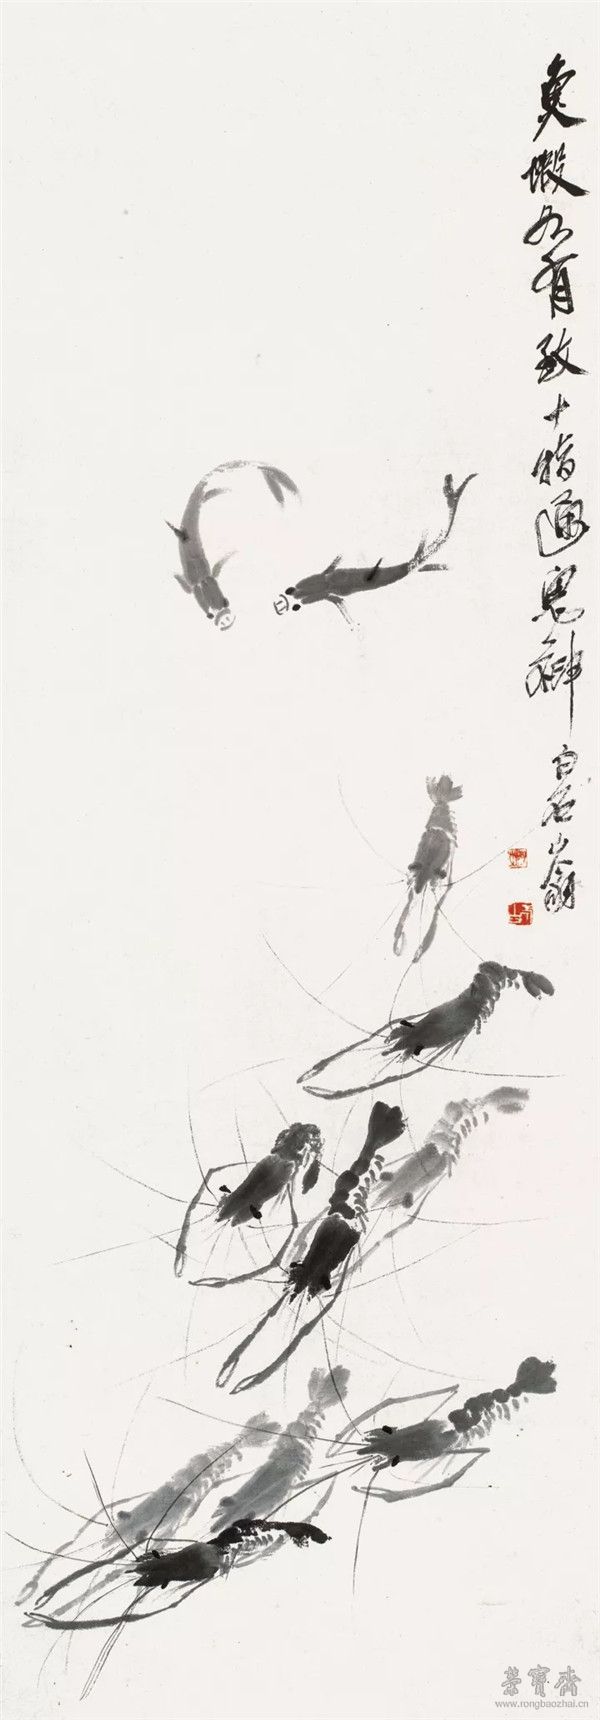 魚蝦各有致十指通鬼神白石山翁
榮寶齋
www.rongbaozhai.cn